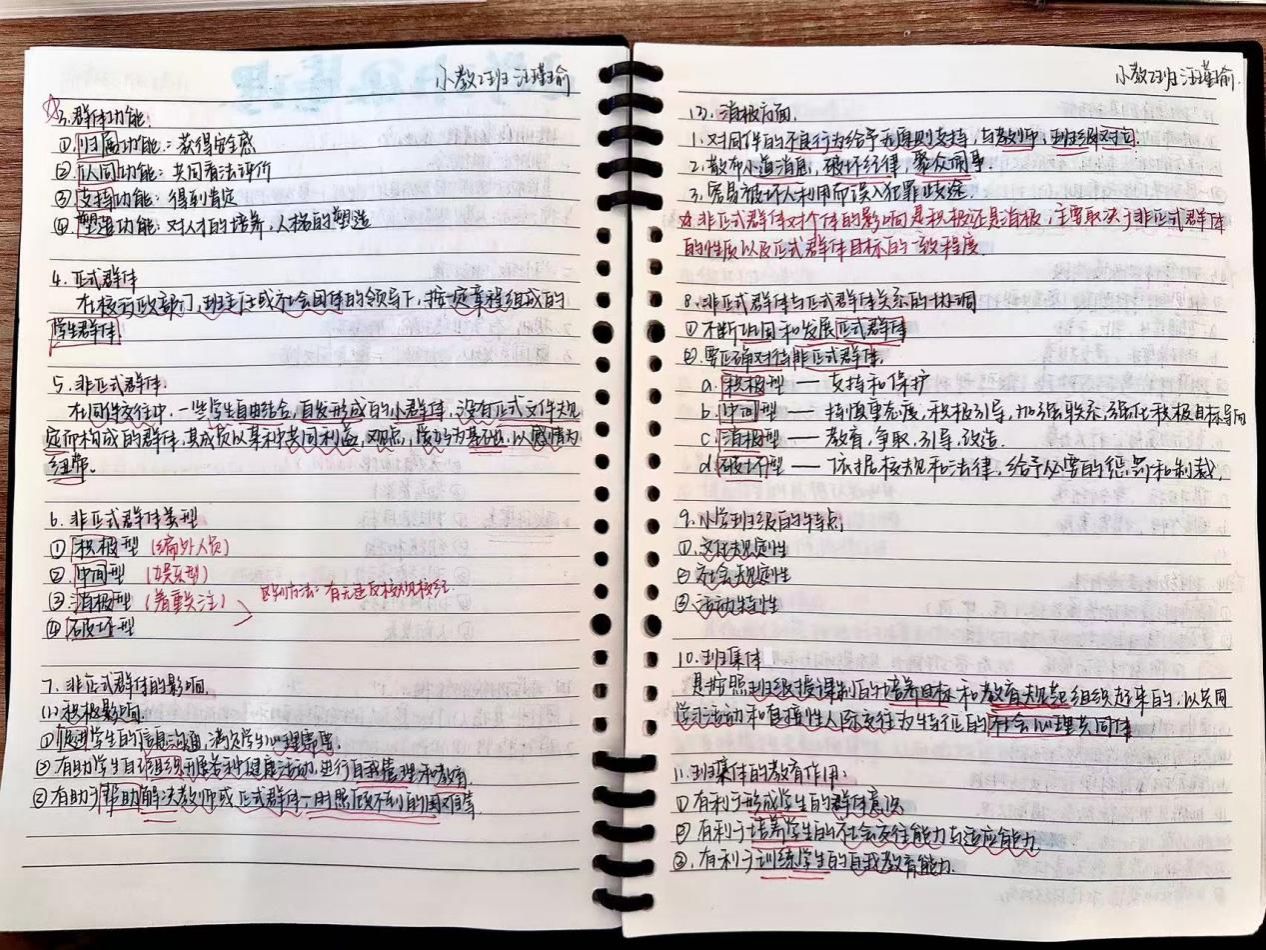 小教2班 汪瑾瑜
3.群体功能:
①归属功能:获得安全感
②认同功能:共同看法评价
③支持功能:得到肯定
④塑造功能:对人才的培养,人格的塑造
4.正式群体
在校行政部门,班主任或社会团体的领导下,按一定章程组成的
学生群体
5.非正式群体:
在同伴交往中,一些学生自由结合,自发形成的小群体,没有正式文件规
定而构成的群体,其成员以某种共同利益,观点,爱好为基础,以感情为
纽带.
6.非正式群体类型
①积极型 (编外人员)
②中间型 (娱乐型)
③消极型 (着重关注)
区别方法:有无违反校规校纪.
④破坏型
7.非正式群体的影响.
(1)积极影响.
①促进学生的信息沟通,满足学生心理需要.
②有助学生自治组织开展各种健康活动,进行自我管理和教育
③有助于帮助解决教师或正式群体一时照顾不到的困难事
小教2班 汪瑾瑜.
(2).消极方面.
1.对同伴的不良行为给予无原则支持,与教师,班级对立.
2.散布小道消息,破坏纪律,聚众闹事.
3.容易被坏人利用而误入犯罪歧途.
☆非正式群体对个体的影响是积极还是消极,主要取决于非正式群体
的性质以及正式群体目标的一致程度.
8.非正式群体与正式群体关系的协调
①不断巩固和发展正式群体
②.要正确对待非正式群体.
a.积极型——支持和保护
b.中间型——持慎重态度,积极引导,加强联系,强化积极目标导向
c.消极型——教育,争取,引导,改造.
d.破坏型——依据校规和法律,给予必要的惩罚和制裁,
9.小学班级的特点,
①.文化规定性
②社会规定性
③活动特性
10.班集体
是按照班级授课制的培养目标和教育规范组织起来的,以共同
学习活动和直接性人际交往为特征的社会心理共同体
11.班集体的教育作用:
①有利于形成学生的群体意识
②有利于培养学生的社会交往能力与适应能力
③.有利于训练学生的自我教育能力.